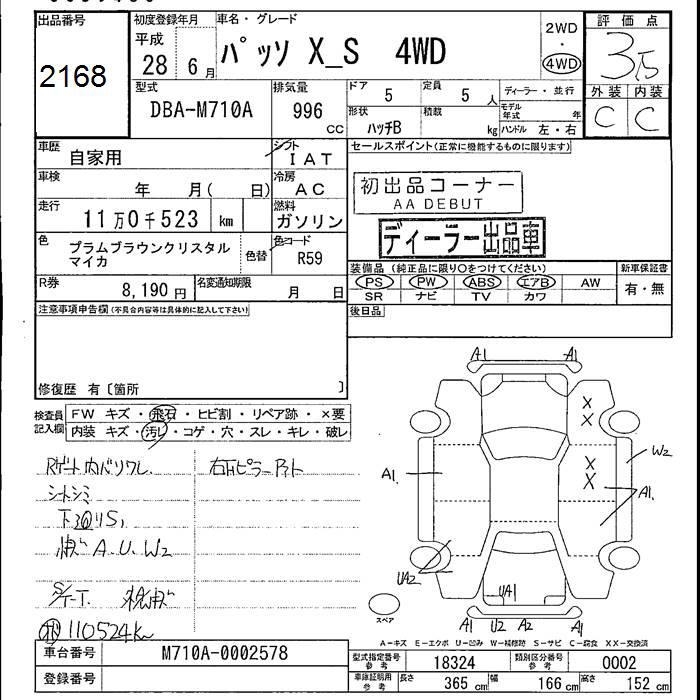 出品番号
2168
初度登録年月
平成
28 6月
車名・グレード
パッソ X_S 4WD
2WD
・
4WD
評価点
3.5
外装 内装
C C
型式
DBA-M710A
排気量
996
CC
ドア
5
定員
5 人
形状
ハッチB
積載
kg
ディーラー・並行
モデル年式 年
ハンドル 左・右
車歴
自家用
シフト
IAT
車検
年 月( 日)
冷房
AC
走行
11万0千523 km
燃料
ガソリン
色
プラムブラウンクリスタル
マイカ
色替
色コード
R59
R券
8,190円
名変通知期限
月 日
セールスポイント(正常に機能するものに限ります)
初出品コーナー
AA DEBUT
ディーラー出品車
装備品(純正品に限り○をつけてください)
PS PW ABS エアB AW
SR ナビ TV カワ
新車保証書
有・無
後日品
注意事項申告欄(不具合内容等は具体的に記入して下さい)
修復歴 有〔箇所 〕
検査員記入欄
FW キズ・飛石・ヒビ割・リペア跡・×要
内装 キズ・汚れ・コゲ・穴・スレ・キレ・破レ
Rゲート内バリワレ
シートシミ
A.U.W2
110524K
A1 A1
X
X
A1.
X
X
W2
A1.
UA2
UA1
A1 U2 A2 A1
スペア
A-キズ E-エクボ U-凹み W-補修跡 S-サビ C-腐食 XX-交換済
車台番号
M710A-0002578
登録番号
型式指定番号
参考
18324
類別区分番号
参考
0002
車庫証明用
参考
長さ 365 cm 幅 166 cm 高さ 152 cm